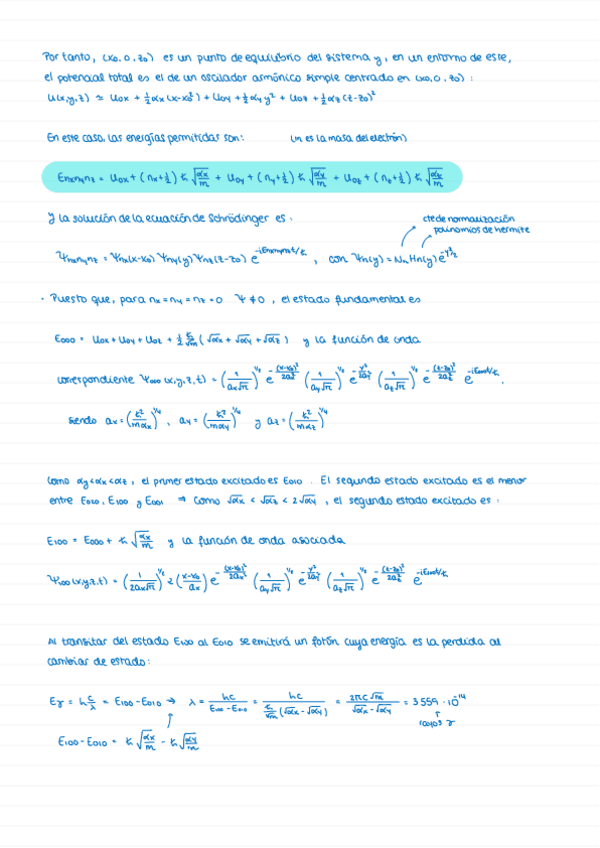 Por tanto, (x₀, 0, z₀) es un punto de equilibrio del sistema y, en un entorno de este,
el potencial total es el de un oscilador armónico simple centrado en (x₀, 0, z₀) :
U(x,y,z) ≃ U₀ₓ + ½αₓ(x-x₀)² + U₀ᵧ + ½αᵧy² + U₀z + ½αz(z-z₀)²
En este caso, las energías permitidas son: (m es la masa del electrón)
Enxnynz = U₀ₓ + (nx+½)ħ√(αx/m) + U₀y + (ny+½)ħ√(αy/m) + U₀z + (nz+½)ħ√(αz/m)
Y la solución de la ecuación de Schrödinger es:
cte de normalización
polinomios de hermite
Ψnxnynz = Ψnx(x-x₀) Ψny(y) Ψnz(z-z₀) e^(-iEnxnynz t/ħ) , con Ψn(y) = Nn Hn(y) e^(-y²/2)
· Puesto que, para nx=ny=nz=0 Ψ≠0, el estado fundamental es
E000 = U0x + U0y + U0z + ½ ħ/√m (√αx + √αy + √αz) y la función de onda
correspondiente Ψ000 (x,y,z,t) = (1/(ax√π))^½ e^(-(x-x₀)²/2ax²) (1/(ay√π))^½ e^(-y²/2ay²) (1/(az√π))^½ e^(-(z-z₀)²/2az²) e^(-iE000t/ħ) .
siendo ax = (ħ²/mαx)^¼ , ay = (ħ²/mαy)^¼ y az = (ħ²/mαz)^¼
Como αy<αx<αz, el primer estado excitado es E010 . El segundo estado excitado es el menor
entre E020, E100 y E001 ⇒ Como √αx < √αz < 2√αy , el segundo estado excitado es :
E100 = E000 + ħ√(αx/m) y la función de onda asociada
Ψ100(x,y,z,t) = (1/(2ax√π))^½ 2((x-x₀)/ax) e^(-(x-x₀)²/2ax²) (1/(ay√π))^½ e^(-y²/2ay²) (1/(az√π))^½ e^(-(z-z₀)²/2az²) e^(-iE100t/ħ)
Al transitar del estado E100 al E010 se emitirá un fotón cuya energía es la perdida al
cambiar de estado:
Eγ = h c/λ = E100 - E010 → λ = hc/(E100-E010) = hc/(ħ/√m (√αx-√αy)) = 2πc√m/(√αx-√αy) = 3'559 · 10⁻¹⁴
rayos γ
E100 - E010 = ħ√(αx/m) - ħ√(αy/m)